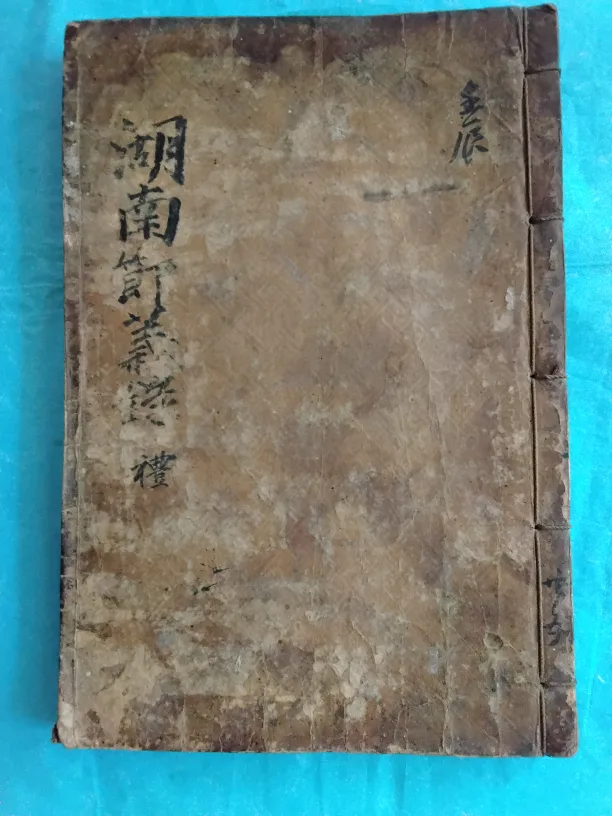 壬辰
湖南節義錄 禮